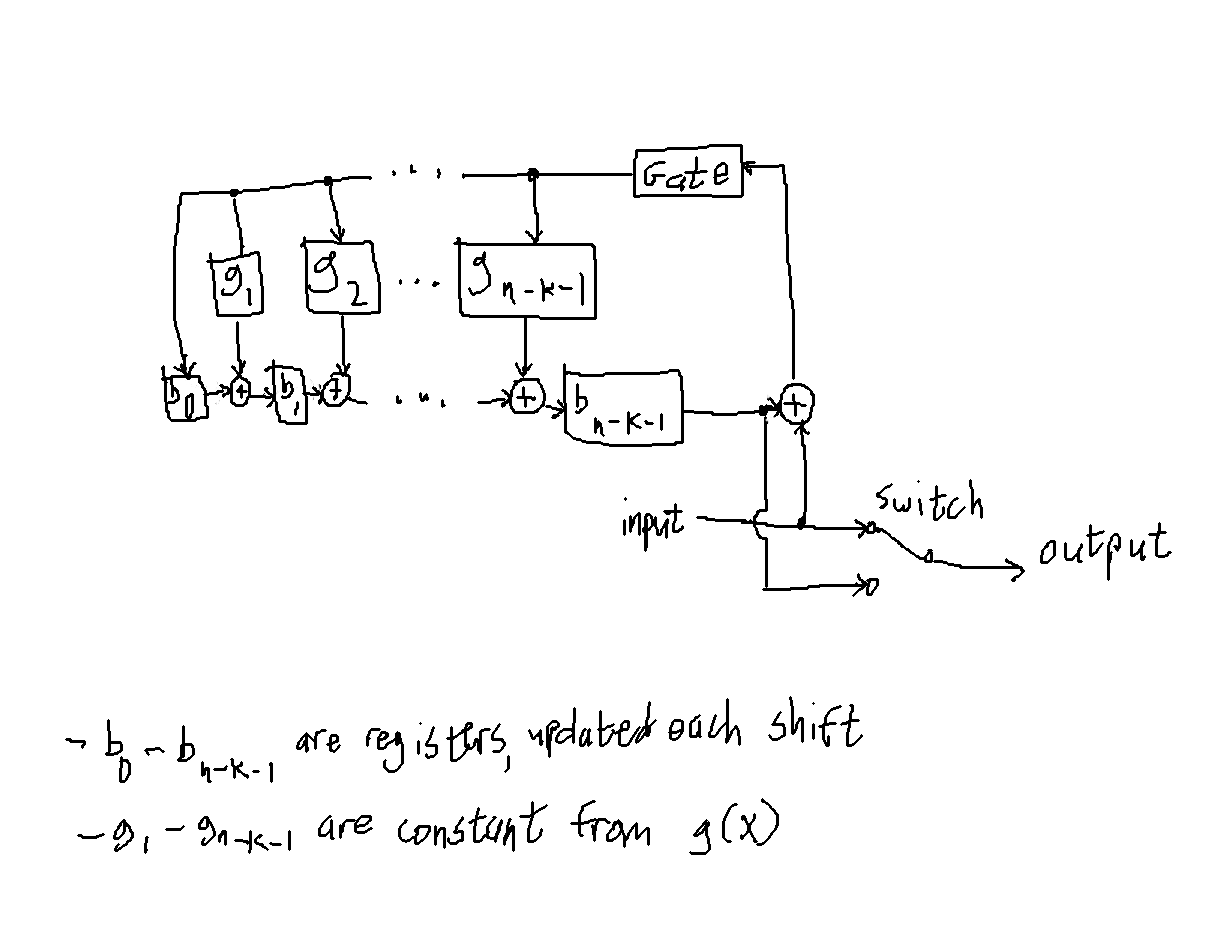 Gate
g1 g2 ... gn-k-1
b0 + b1 + ... + bn-k-1 +
input
switch
output
- b0 - bn-k-1 are registers, updated each shift
- g1 - gn-k-1 are constant from g(x)